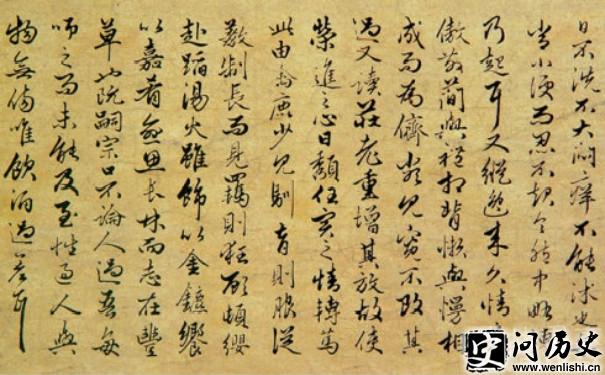 日不洗不大悶癢不能沐也
常小便而忍不起令胞中略轉
乃起耳又縱逸来久情
傲散簡與禮相背懶與慢相
成而為儕類見寬不攻其
過又讀莊老重增其放故使
榮進之心日頹任實之情轉篤
此由禽鹿少見馴育則服從
教制長而見羈則狂顧頓纓
赴蹈湯火雖飾以金鑣饗
以嘉肴愈思長林而志在豐
草也阮嗣宗口不論人過吾每
師之而未能及至性過人與
物無傷唯飲酒過差耳
史问历史
www.wenlishi.cn